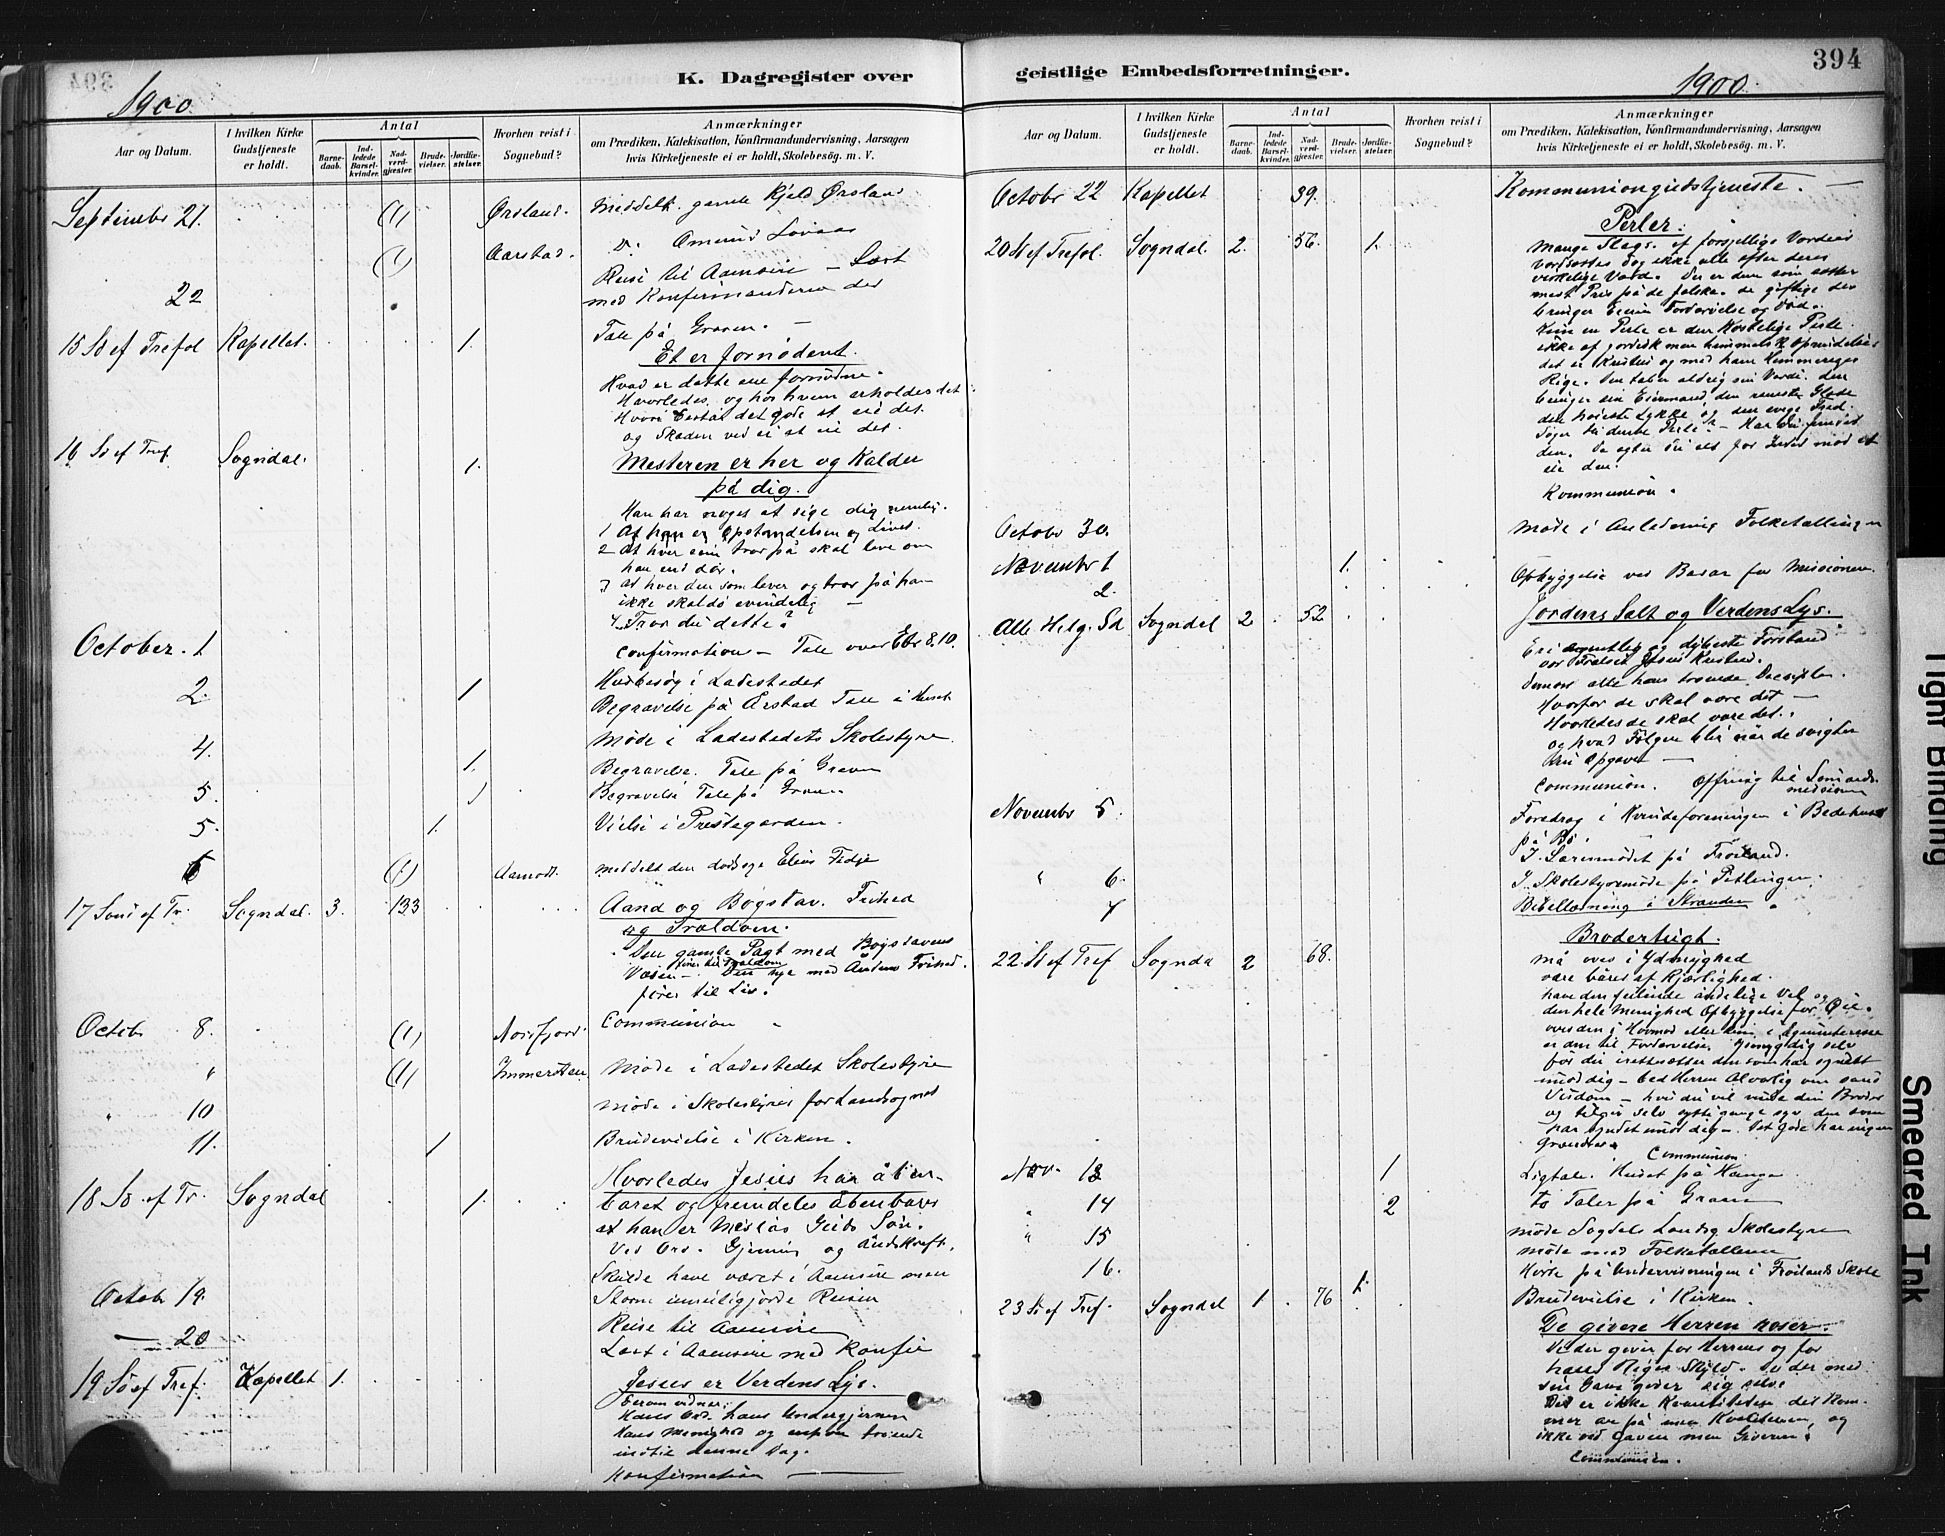 1900.
K. Dagregister over
Aar og Datum.
I hvilken Kirke Gudstjeneste er holdt.
Antal
Barnedaab.
Indledede Barselkvinder.
Nadverdgjester.
Brudevielser.
Jordfæstelser.
Hvorhen reist i Sognebud?
Anmærkninger
om Prædiken, Katekisation, Konfirmandundervisning, Aarsagen
hvis Kirketjeneste ei er holdt, Skolebesøg. m. V.
Septembr 21. (1) Ørsland. Meddelt gamle Kjeld Ørsland
(1) Aarstad. Do. Omund Lovaas
22 Reise til Aamsire — Læst
med Konfirmanderne der
15 Sø ef Trefol Kapellet. 1. Tale på Graven. —
Et er fornødent.
Hvad er dette ene fornødne.
Hvorledes og hos hvem erholdes det
Hvori består det gode at eie det.
og Skaden ved ei at eie det.
16 Sø ef Tref. Sogndal. 1. Mesteren er her og kalder
på dig.
Han har noget at sige dig nemlig.
1 At han er opstandelsen og Livet.
2 At hver som tror på skal leve om
han end dør.
3 at hver den som lever og tror på ham
ikke skal dø evindelig —
4 Tror du dette?
October. 1 Confirmation — Tale over Ebr 8.10.
2. 1 Husbesøg i Ladestedet
Begravelse på Årstad Tale i Huset
4. Møde i Ladestedets Skolestyre
1. Begravelse. Tale på Graven
5. Begravelse Tale på Graven
5. 1. Vielse i Prestegarden.
6 (1) Aamodt. meddelt den dødssyge Elias Tedje
17 Sønd ef Tr. Sogndal. 3. 133 Aand og Bogstav. Frihed
og Trældom.
Den gamle Pagt med Bogstavens
Væsen — fører til Trældom Den nye med Åndens Frihed.
fører til Liv.
Octob 8. (1) Nesfjord. Communion
" (1) Immerstein Møde i Ladestedet Skolestyre
" 10 Møde i Skolestyret for Landsognet
11. 1 Brudevielse i Kirken.
18 Sø. ef Tr. Sogndal 1. Hvorledes Jesus har åben-
baret og fremdeles åbenbarer
at han er Messias Guds Søn.
Ved Ord. Gjerning og Åndskraft.
Octob 19. Skulde have været i Aamsire men
Storm umuligjorde Reisen
— 20 Reise til Aamsire
Læst i Aamsire med Konfir
19 Sø ef Tref. Kapellet 1. Jesus er Verdens Lys.
Derom vidner:
Hans Ord. hans Undergjerninger
Hans Menighed og enhver troende
indtil denne Dag.
Konfirmation —
394
geistlige Embedsforretninger.
1900.
Aar og Datum.
I hvilken Kirke Gudstjeneste er holdt.
Antal
Barnedaab.
Indledede Barselkvinder.
Nadverdgjester.
Brudevielser.
Jordfæstelser.
Hvorhen reist i Sognebud?
Anmærkninger
om Prædiken, Katekisation, Konfirmandundervisning, Aarsagen
hvis Kirketjeneste ei er holdt, Skolebesøg. m. V.
Octobr 22 Kapellet 39. Kommuniongudstjeneste. —
Perler.
20 Sø ef Trefol. Sogndal. 2. 56. 1. Mange Slags. af forskjellige Værdier
værdsættes dog ikke alle efter deres
virkelige Værd. Der er dem som sætter
mest Pris på de falske. de giftige der
bringer Eieren Fordærvelse og Død.
Kun en Perle er den kostelige Perle.
ikke af jordisk men himmelsk Oprindelse
det er Kristus og med ham Himmeriges
Rige. Den taber aldrig sin Værdi. den
bringer sin Eiermand den reneste Glæde
den høieste Lykke og den evige Fred.
Søger du denne Perle? — Har du fundet
den. Da agter du alt for intet mod at
eie den.
Kommunion.
Octobr 30. Møde i Anledning Folketællingen
Novembr 1 1.
2. Opbyggelse ved Basar for Missionen.
Alle Helg. Sd Sogndal 2 52 Jordens Salt og Verdens Lys.
Er i egentlig og dybeste Forstand
vor Frelser Jesus Kristus.
dernæst alle hans troende Disciple.
Hvorfor de skal være det —
Hvorledes de skal være det.
og hvad Følgen blir når de svigter
sin Opgave —
Communion. Offring til Sømands
missionen
Novembr 5. Foredrag i Kvindeforeningen i Bedehuset
på Bø.
" 6. I Skolestyremøde på Pitlingen.
7 Bibellæsning i Stranden
22. Sø ef Tref Sogndal 2 68. Brodertugt.
må øves i Ydmyghed
være båret af Kjærlighed.
have den feilende åndelige Vel og
den hele Menighed Opbyggelse for Øie.
øves den i Hovmod eller kun i Egeninteresse
er den til Fordærvelse. Ydmyg dig selv
før du irettesætter den som har syndet
imod dig — bed Herren Alvorlig om sand
Visdom — hvis du vil vinde din Broder
og tilgiv selv sytti gange syv den som
har syndet imod dig — Det Gode har ingen
Grændser.
Communion.
Nov. 13 1 Ligtale i Huset på Hauge
" 14 2 to Taler på Graven
" 15 Møde Sogndals Landsg. Skolestyre
Møde med Folketællerne
16. Hørte på Undervisningen i Frøilands Skole
1. Brudevielse i Kirken.
23 Sø ef Tref. Sogndal 1 76 De givere Herren roser.
De der giver for Herrens og for
hans Riges Skyld. De der med
sin Gave giver sig selv.
Det er ikke Kvantiteten det kom-
mer an på men Kvaliteten, og
ikke ved Gaven men Giveren.
Communion.
Tight Binding
Smeared Ink